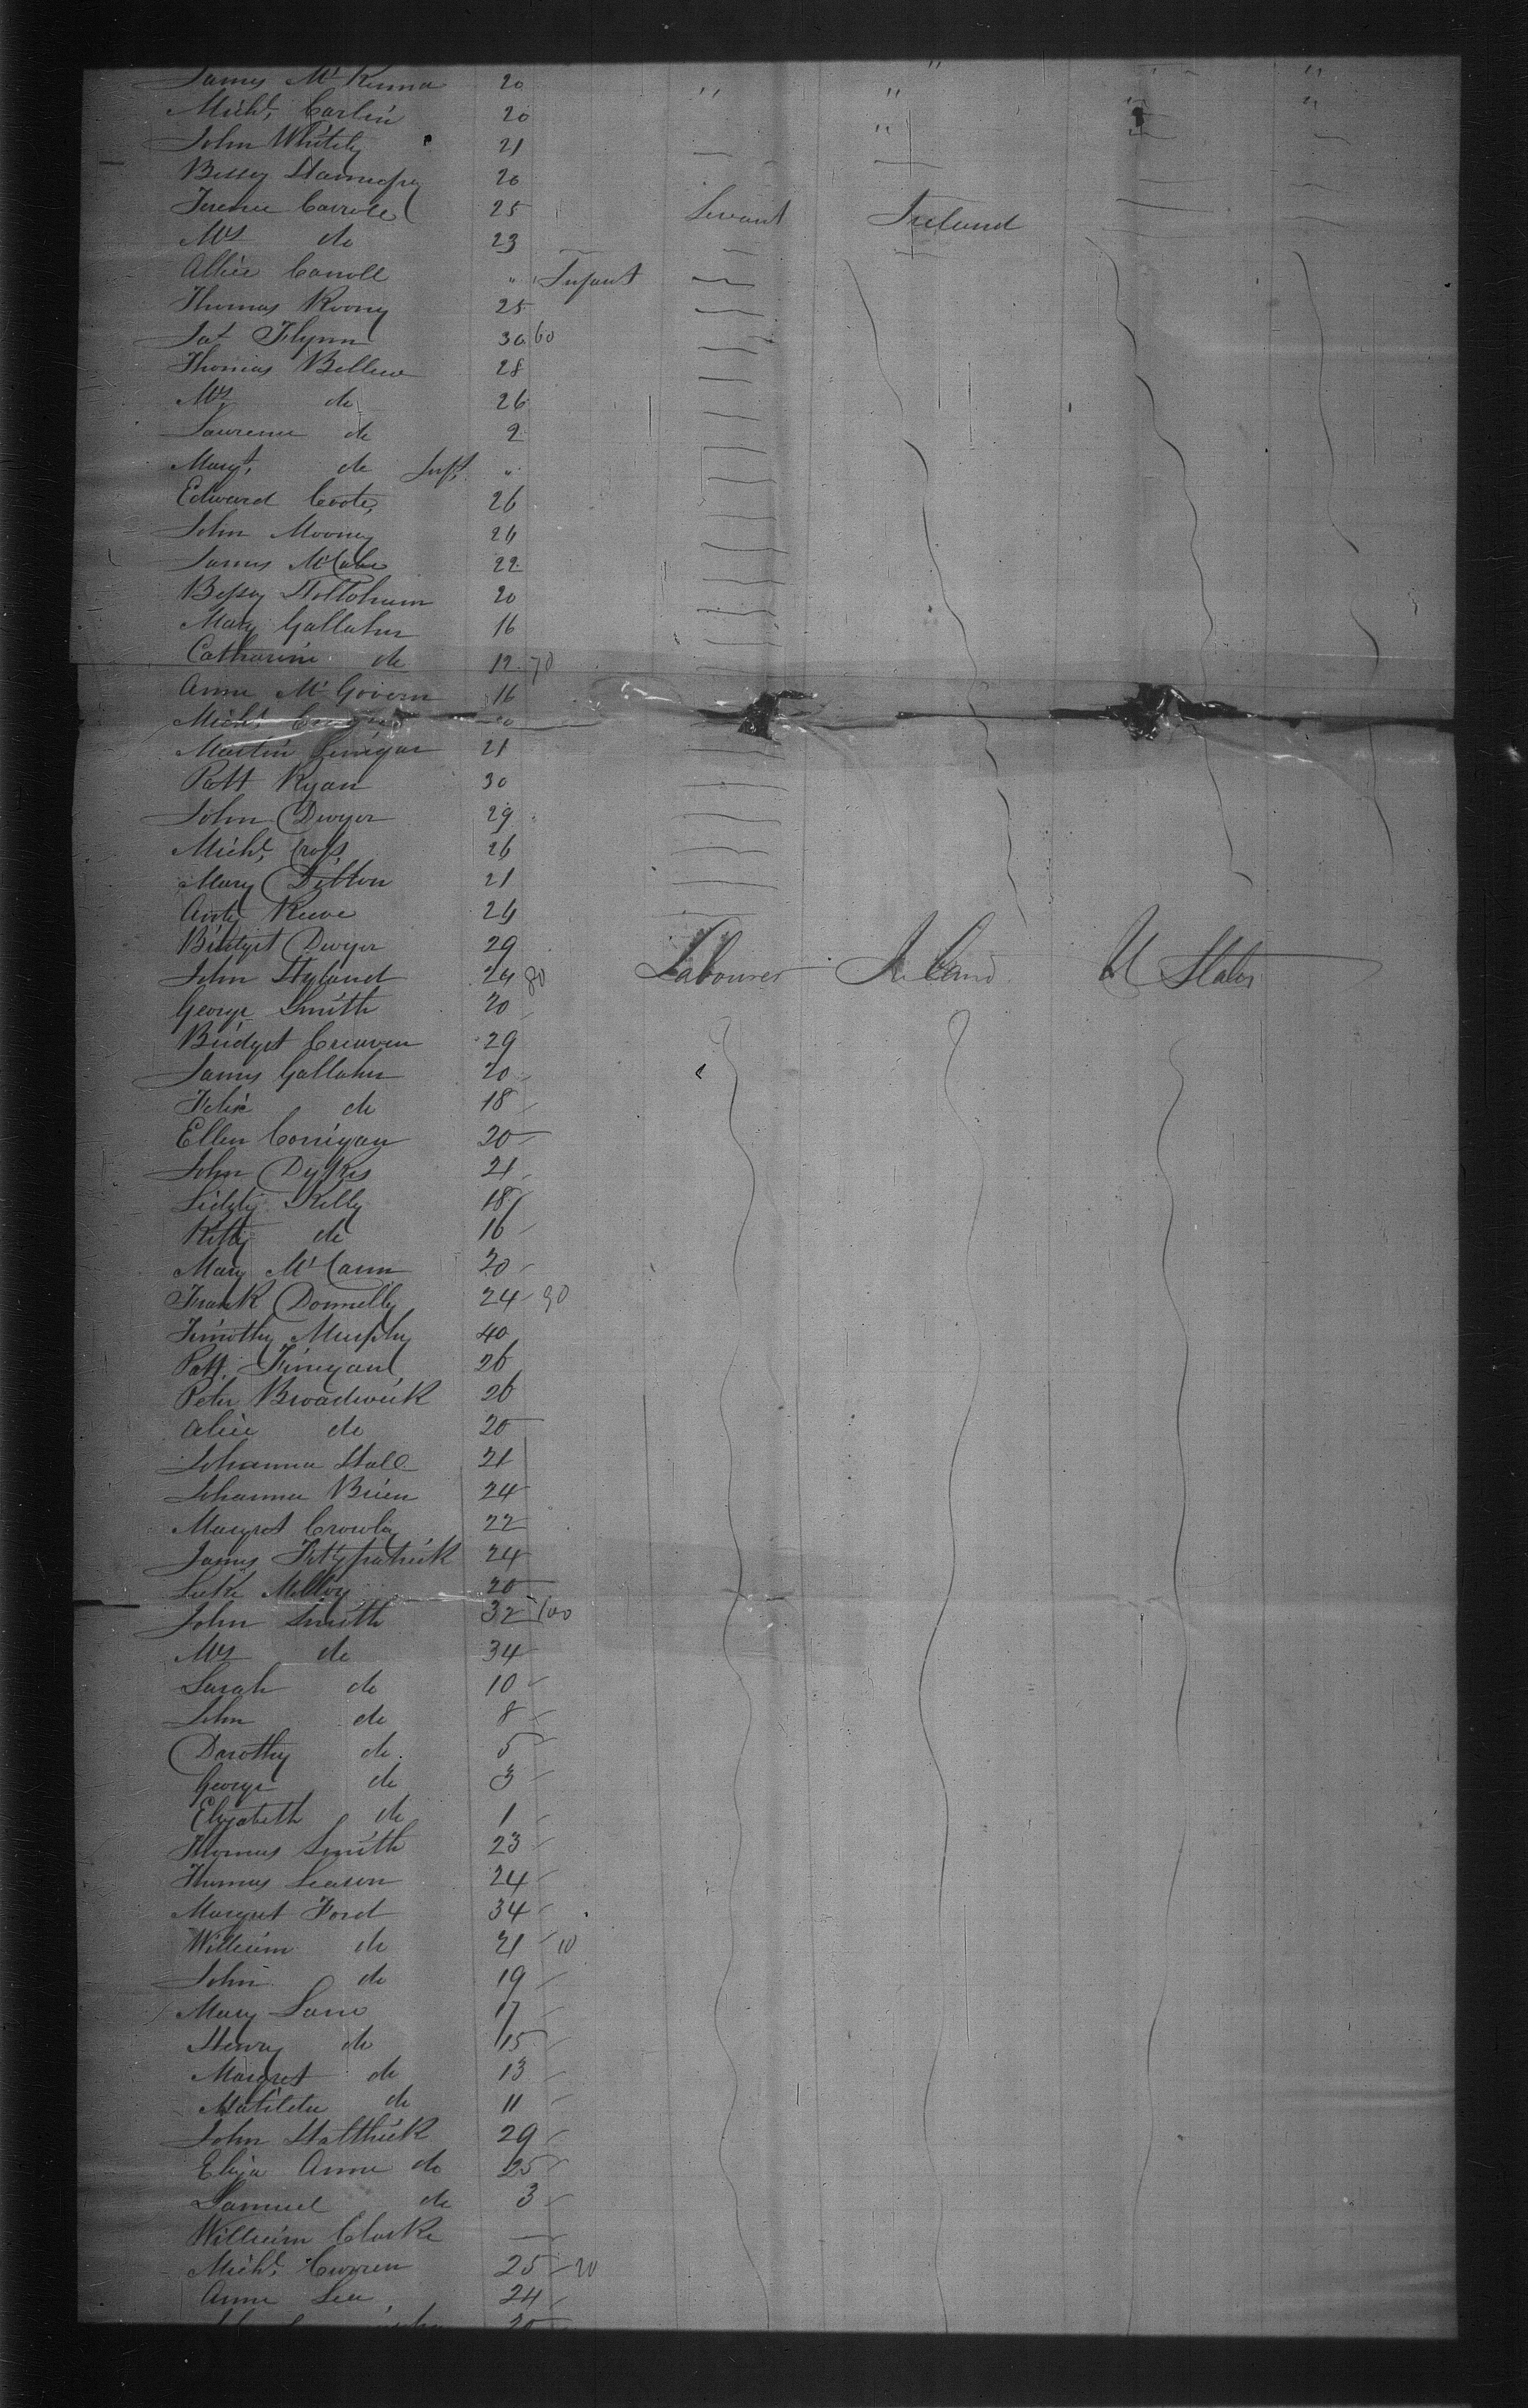 James McKenna 20 " " "
Michl. Carlin 20 " " " "
John Whitely 21 "
Bessy 20
Terence Carroll 25 Servant Ireland
Mrs do 23
Allice Carroll " Infant
Thomas Roony 25
Pat Flynn 30 60
Thomas Bellew 28
Mrs do 26
Lawrence do 2
Margt. do Inft. "
Edward Coote 26
John Mooney 24
James McCabe 22
Bessy 20
Mary Gallaher 16
Catharine do 12 70
Anne McGovern 16
Michl.
Martin 21
Patt Ryan 30
John Dwyer 29
Michl. Cross 26
Mary Dillon 21
24
Bridget Dwyer 29
John Hyland 24 80 Labourer Ireland U States
George Smith 20
Bridget Creaven 29
James Gallaher 20
Felix do 18
Ellen Corrigan 20
John Dykes 21
Kelly 18
Kitty do 16
Mary McCann 20
Frank Donnelly 24 90
Timothy Murphy 40
Patt. Finegan 26
Peter Broadwick 26
Alice do 20
Johanna Hall 21
Johanna Brien 24
Margret Crowley 22
James Fitzpatrick 24
Luke 20
John Smith 32 100
Mrs do 34
Sarah do 10
John do 8
Dorothy do 5
George do 3
Elizabeth do 1
Thomas Smith 23
Thomas Leason 24
Margret Ford 34
William do 21 10
John do 19
Mary Lane 17
Henry do 15
Margret do 13
Matilda do 11
John 29
Eliza Anne do 25
Samuel do 3
William Clarke —
Michl. Curren 25 20
Anne Lee 24
20